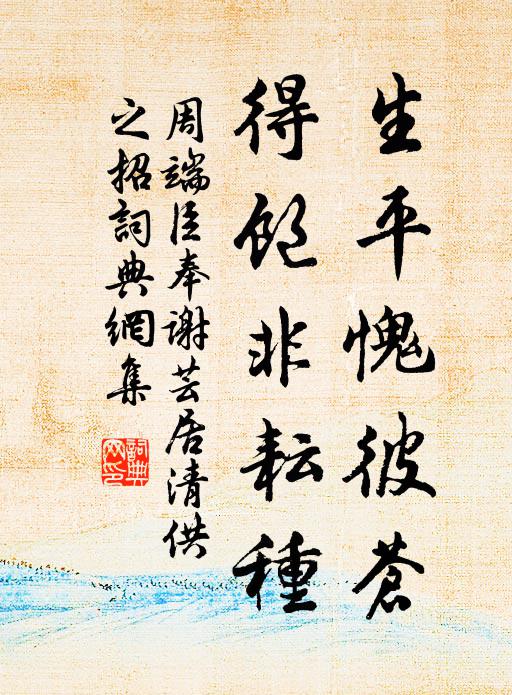 生平愧彼蒼
得飽非耘種
周端臣奉謝芸居清供
之招詞典網集
詞典
网印